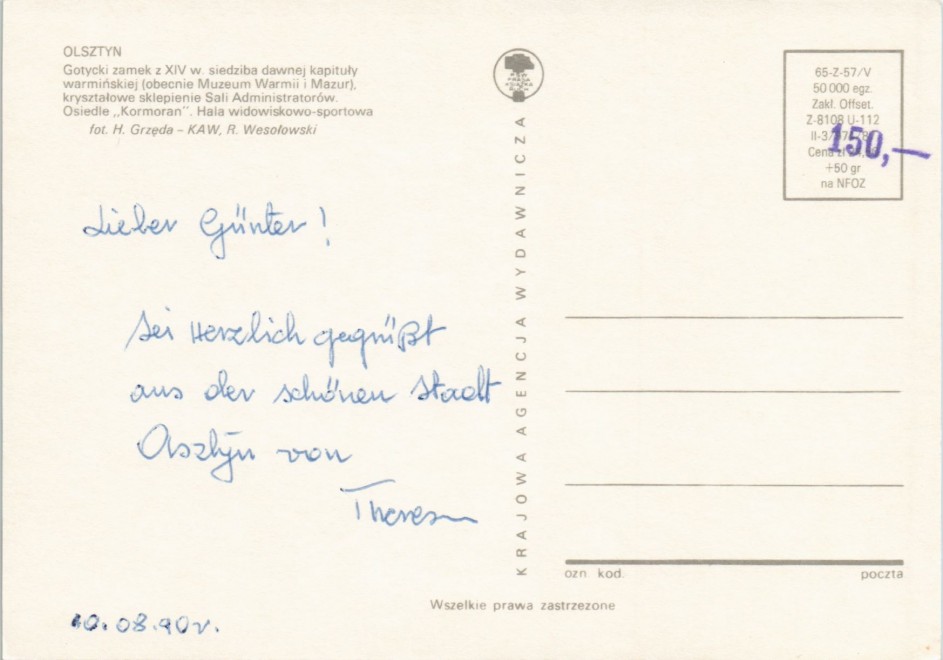 OLSZTYN
Gotycki zamek z XIV w. siedziba dawnej kapituły
warmińskiej (obecnie Muzeum Warmii i Mazur),
kryształowe sklepienie Sali Administratorów.
Osiedle „Kormoran”. Hala widowiskowo-sportowa
fot. H. Grzęda – KAW, R. Wesołowski
Lieber Günter!
sei Herzlich gegrüßt
aus der schönen Stadt
Olsztyn von
Theresa
10.08.90r.
KRAJOWA AGENCJA WYDAWNICZA
65-Z-57/V
50 000 egz.
Zakł. Offset.
Z-8108 U-112
150,—
+50 gr
na NFOZ
ozn. kod.
poczta
Wszelkie prawa zastrzezone